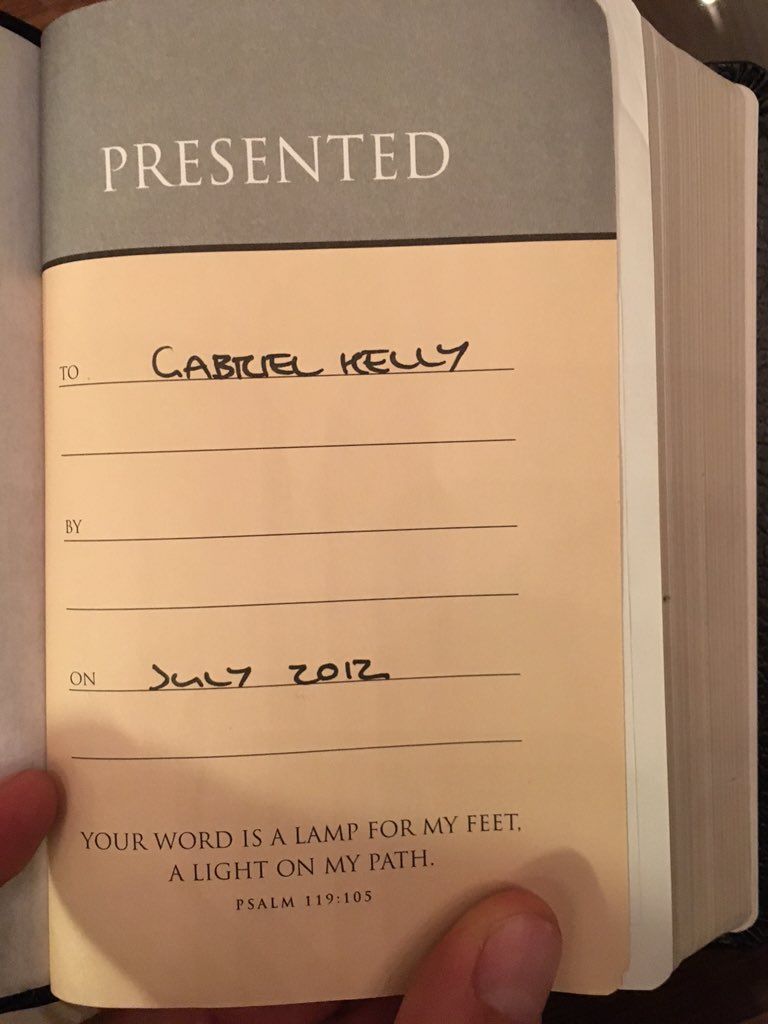 PRESENTED
TO GABRIEL KELLY
BY
ON JULY 2012
YOUR WORD IS A LAMP FOR MY FEET,
A LIGHT ON MY PATH.
PSALM 119:105